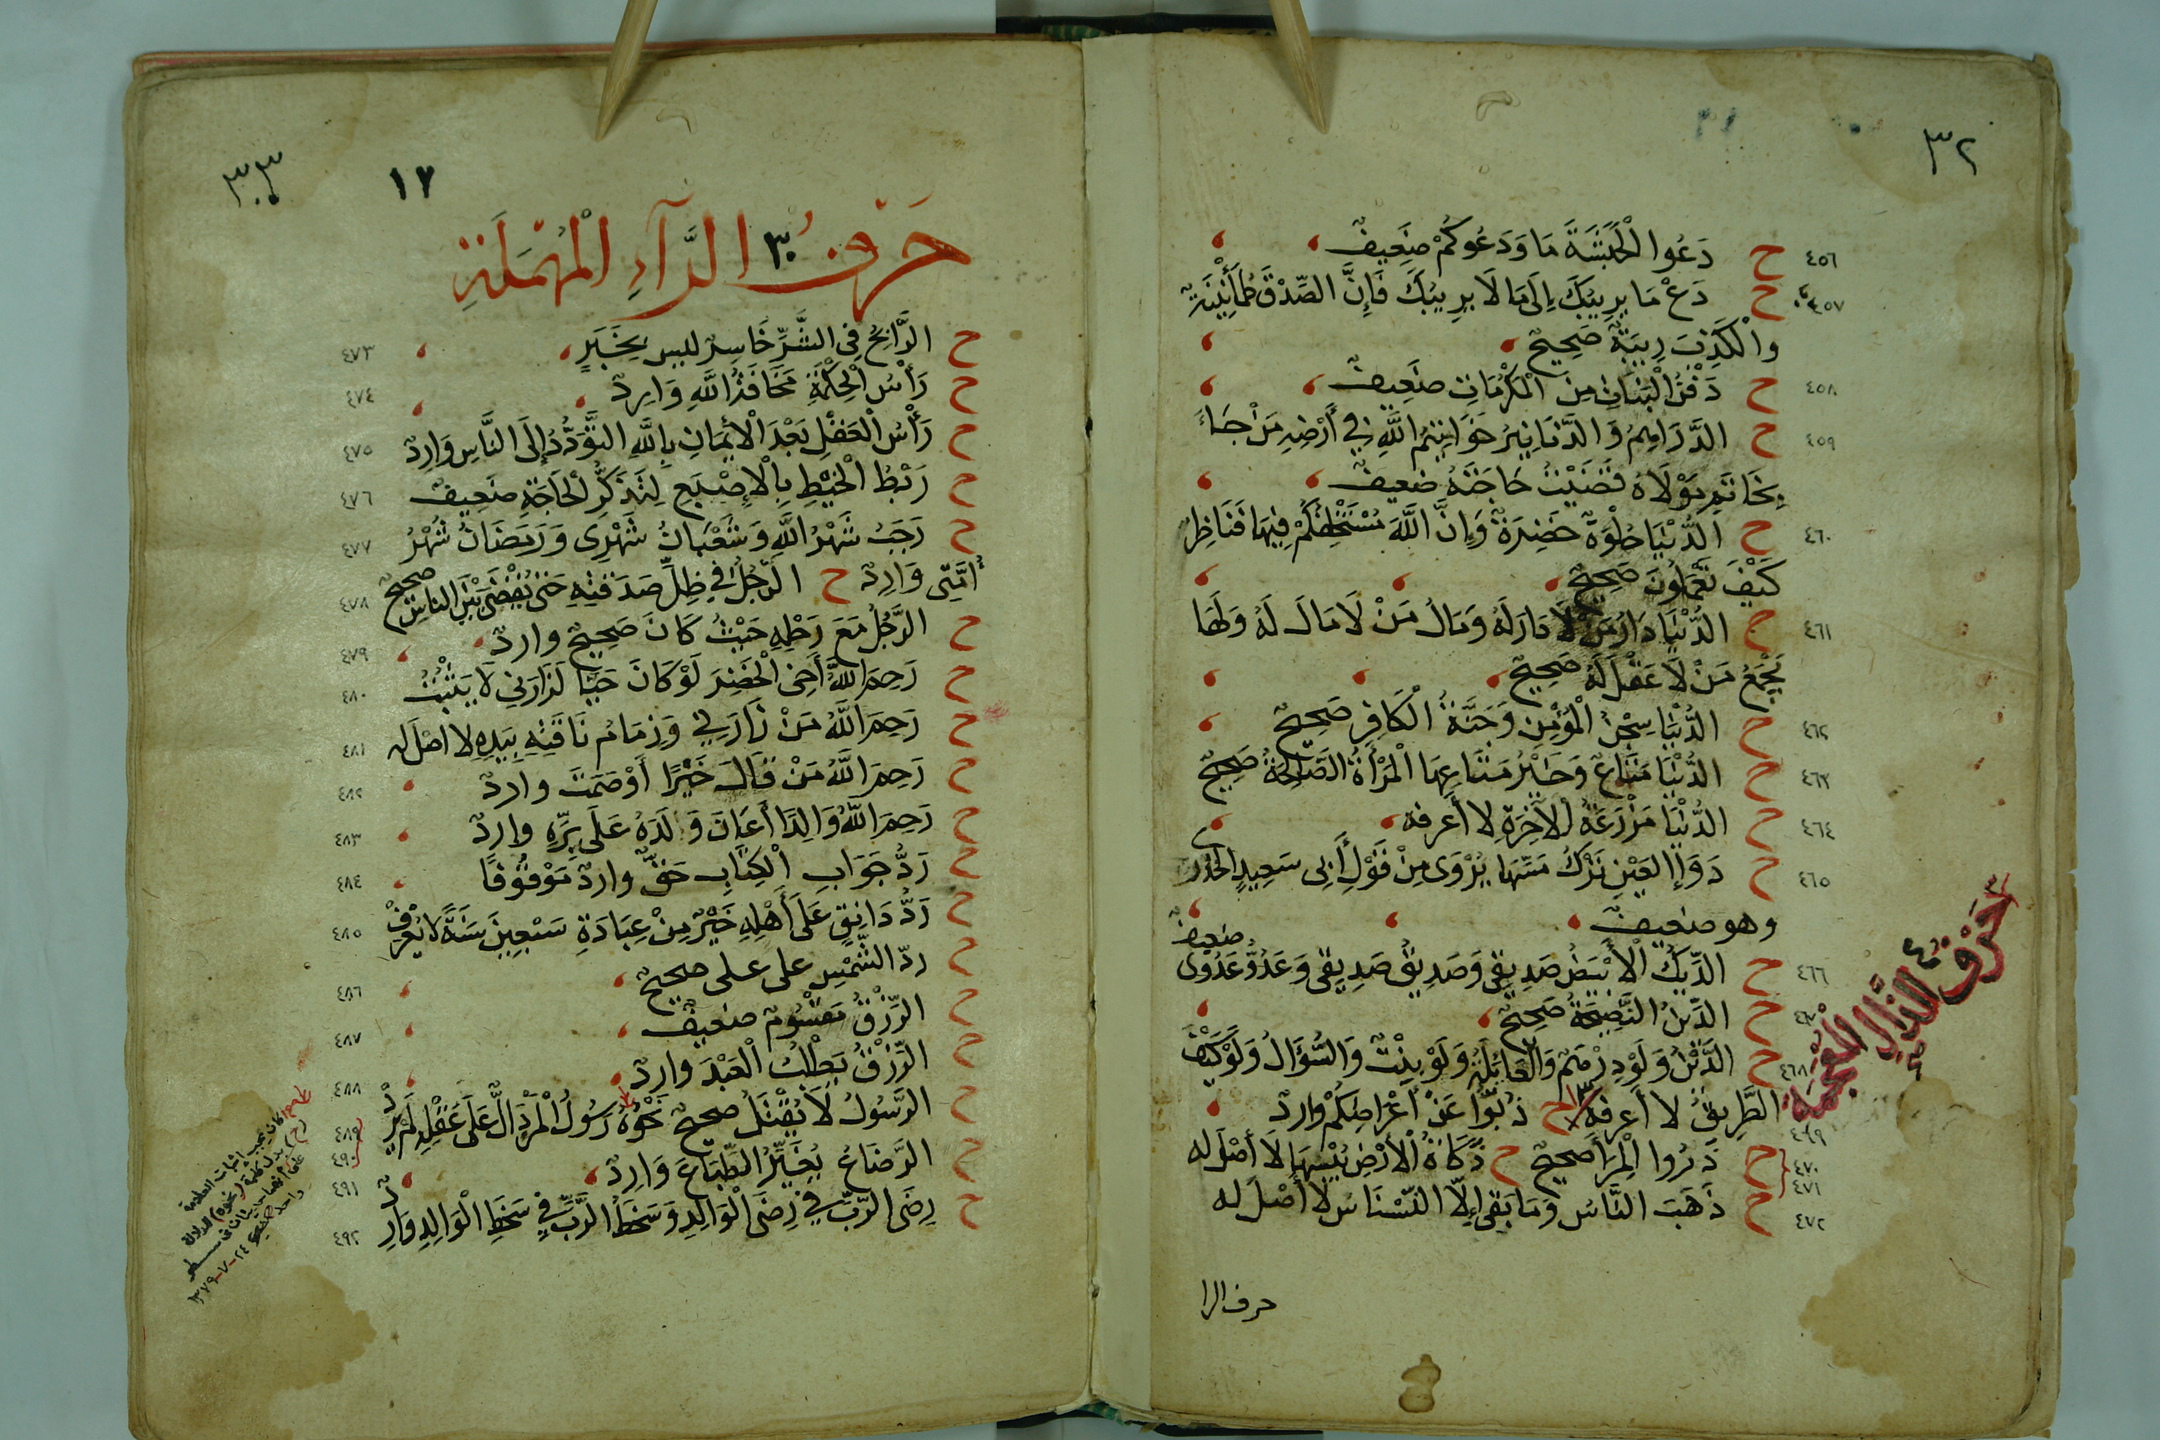 ٣٢
٤٥٦ ح دَعُوا الْحَبَشَةَ مَا وَدَعُوكُمْ ضَعِيفٌ
٤٥٧ ح دَعْ مَا يَرِيبُكَ إِلَى مَا لَا يَرِيبُكَ فَإِنَّ الصِّدْقَ طُمَأْنِينَةٌ
وَالْكَذِبَ رِيبَةٌ صَحِيحٌ
٤٥٨ ح دَفْنُ الْبَنَاتِ مِنَ الْمَكْرُمَاتِ ضَعِيفٌ
٤٥٩ ح الدَّرَاهِمُ وَالدَّنَانِيرُ خَوَاتِيمُ اللَّهِ فِي أَرْضِهِ مَنْ جَاءَ
بِخَاتَمِ مَوْلَاهُ قُضِيَتْ حَاجَتُهُ ضعيفٌ
٤٦٠ ح الدُّنْيَا حُلْوَةٌ خَضِرَةٌ وَإِنَّ اللَّهَ مُسْتَخْلِفُكُمْ فِيهَا فَنَاظِرٌ
كَيْفَ تَعْمَلُونَ صَحِيحٌ
٤٦١ ح الدُّنْيَا دَارُ مَنْ لَا دَارَ لَهُ وَمَالُ مَنْ لَا مَالَ لَهُ وَلَهَا
يَجْمَعُ مَنْ لَا عَقْلَ لَهُ صَحِيحٌ
٤٦٢ ح الدُّنْيَا سِجْنُ الْمُؤْمِنِ وَجَنَّةُ الْكَافِرِ صَحِيحٌ
٤٦٣ ح الدُّنْيَا مَتَاعٌ وَخَيْرُ مَتَاعِهَا الْمَرْأَةُ الصَّالِحَةُ صَحِيحٌ
٤٦٤ ح الدُّنْيَا مَزْرَعَةُ الْآخِرَةِ لا أَعْرِفه
٤٦٥ ح دَوَاءُ الْعَيْنِ تَرْكُ مَسِّهَا يُرْوَى مِنْ قَوْلِ أَبِى سَعِيدٍ الخُدْرى
وهو ضَعِيفٌ
٤٦٦ ح الدِّيكُ الْأَبْيَضُ صَدِيقِى وَصَدِيقُ صَدِيقِى وَعَدُوُّ عَدُوِّى ضعيف
ح الدِّينُ النَّصِيحَةُ صَحِيحٌ
٤٦٨ ح الدَّيْنُ وَلَوْ دِرْهَمٌ وَالْعَائِلَةُ وَلَوْ بِنْتٌ وَالسُّؤَالُ وَلَوْ كَيْفَ
الطَّرِيقُ لا أَعرفهُ ح ذُبُّوا عَنْ أَعْرَاضِكُمْ وارِدٌ
٤٦٩
٤٧٠ ح ذَرُوا الْمِرَاءَ صَحِيحٌ ح ذَكَاةُ الْأَرْضِ يُبْسُهَا لَا أَصْلَ له
٤٧١
٤٧٢ ح ذَهَبَ النَّاسُ وَمَا بَقِىَ إِلَّا النَّسْنَاسُ لَا أَصْلَ له
حَرْفُ الذَّالِ الْمُعْجَمَةِ
حرف الرا
٣٣
١٧
حَرْفُ الرَّآءِ الْمُهْمَلَةِ
٣٠
ح الرَّابِحُ فِى الشَّرِّ خَاسِرٌ ليس بِخَبَرٍ ٤٧٣
ح رَأْسُ الْحِكْمَةِ مَخَافَةُ اللَّهِ وَارِدٌ ٤٧٤
ح رَأْسُ الْعَقْلِ بَعْدَ الْإِيمَانِ بِاللَّهِ التَّوَدُّدُ إِلَى النَّاسِ وَارِدٌ ٤٧٥
ح رَبْطُ الْخَيْطِ بِالْإِصْبَعِ لِتَذَكُّرِ الْحَاجَةِ ضَعِيفٌ ٤٧٦
ح رَجَبُ شَهْرُ اللَّهِ وَشَعْبَانُ شَهْرِى وَرَمَضَانُ شَهْرُ ٤٧٧
أُمَّتِى وَارِدٌ ح الرَّجُلُ فِي ظِلِّ صَدَقَتِهِ حَتَّى يُقْضَى بَيْنَ النَّاسِ صحيح ٤٧٨
ح الرَّجُلُ مَعَ رَحْلِهِ حَيْثُ كَانَ صَحِيحٌ واردٌ ٤٧٩
ح رَحِمَ اللَّهُ أَخِى الْخَضِرَ لَوْ كَانَ حَيًّا لَزَارَنِي لَا يَثْبُتُ ٤٨٠
ح رَحِمَ اللَّهُ مَنْ زَارَنِي وَزِمَامُ نَاقَتِهِ بِيَدِهِ لا اصْلَ له ٤٨١
ح رَحِمَ اللَّهُ مَنْ قَالَ خَيْرًا أَوْ صَمَتَ واردٌ ٤٨٢
ح رَحِمَ اللَّهُ وَالِدًا أَعَانَ وَلَدَهُ عَلَى بِرِّهِ واردٌ ٤٨٣
ح رَدُّ جَوَابِ الْكِتَابِ حَقٌّ واردٌ مَوْقُوفًا ٤٨٤
ح رَدُّ دَانِقٍ عَلَى أَهْلِهِ خَيْرٌ مِنْ عِبَادَةِ سَبْعِينَ سَنَةً لَا يُعْرَفُ ٤٨٥
ح ردّ الشَّمْسِ على على صحيحٌ ٤٨٦
ح الرِّزْقُ مَقْسُومٌ ضعيفٌ ٤٨٧
ح الرِّزْقُ يَطْلُبُ الْعَبْدَ وارِدٌ ٤٨٨
ح الرَّسُولُ لَا يُقْتَلُ صحيحٌ نَحْوُهُ رَسُولُ الْمَرْءِ دَالٌّ عَلَى عَقْلِهِ لَمْ يَرِدْ ٤٨٩
٤٩٠
ح الرَّضَاعُ يُغَيِّرُ الطِّبَاعَ وَارِدٌ ٤٩١
ح رِضَى الرَّبِّ فِي رِضَى الْوَالِدِ وَسَخَطُ الرَّبِّ فِي سَخَطِ الْوَالِدِ وَارِدٌ ٤٩٢
كان يجب اثبات العلامة
(ح) بدل كلمة (نحوه) للدلالة
على انهما حديثان فى سطر
واحد